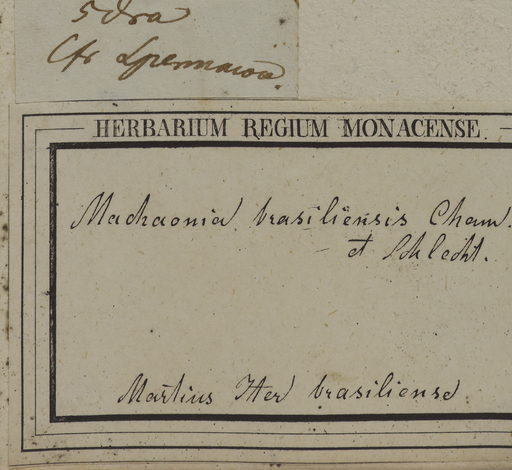 5dra
Cfr Spermacoce.
HERBARIUM REGIUM MONACENSE.
Machaonia brasiliensis Cham.
et Schlecht.
Martius Iter brasiliense